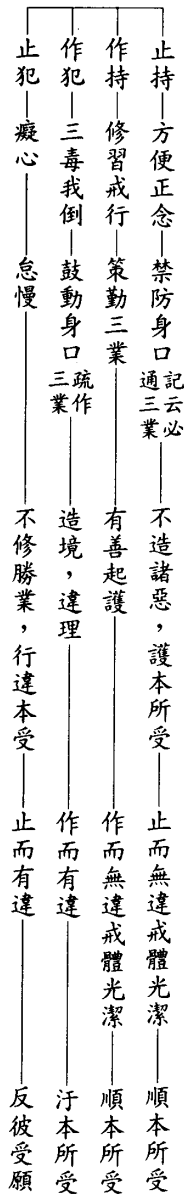 止持—方便正念—禁防身口 記云必通三業—不造諸惡，護本所受—止而無違戒體光潔—順本所受
作持—修習戒行—策勤三業—有善起護—作而無違戒體光潔—順本所受
作犯—三毒我倒—鼓動身口 疏作三業—造境，違理—作而有違—汙本所受
止犯—癡心—怠慢—不修勝業，行違本受—止而有違—反彼受願